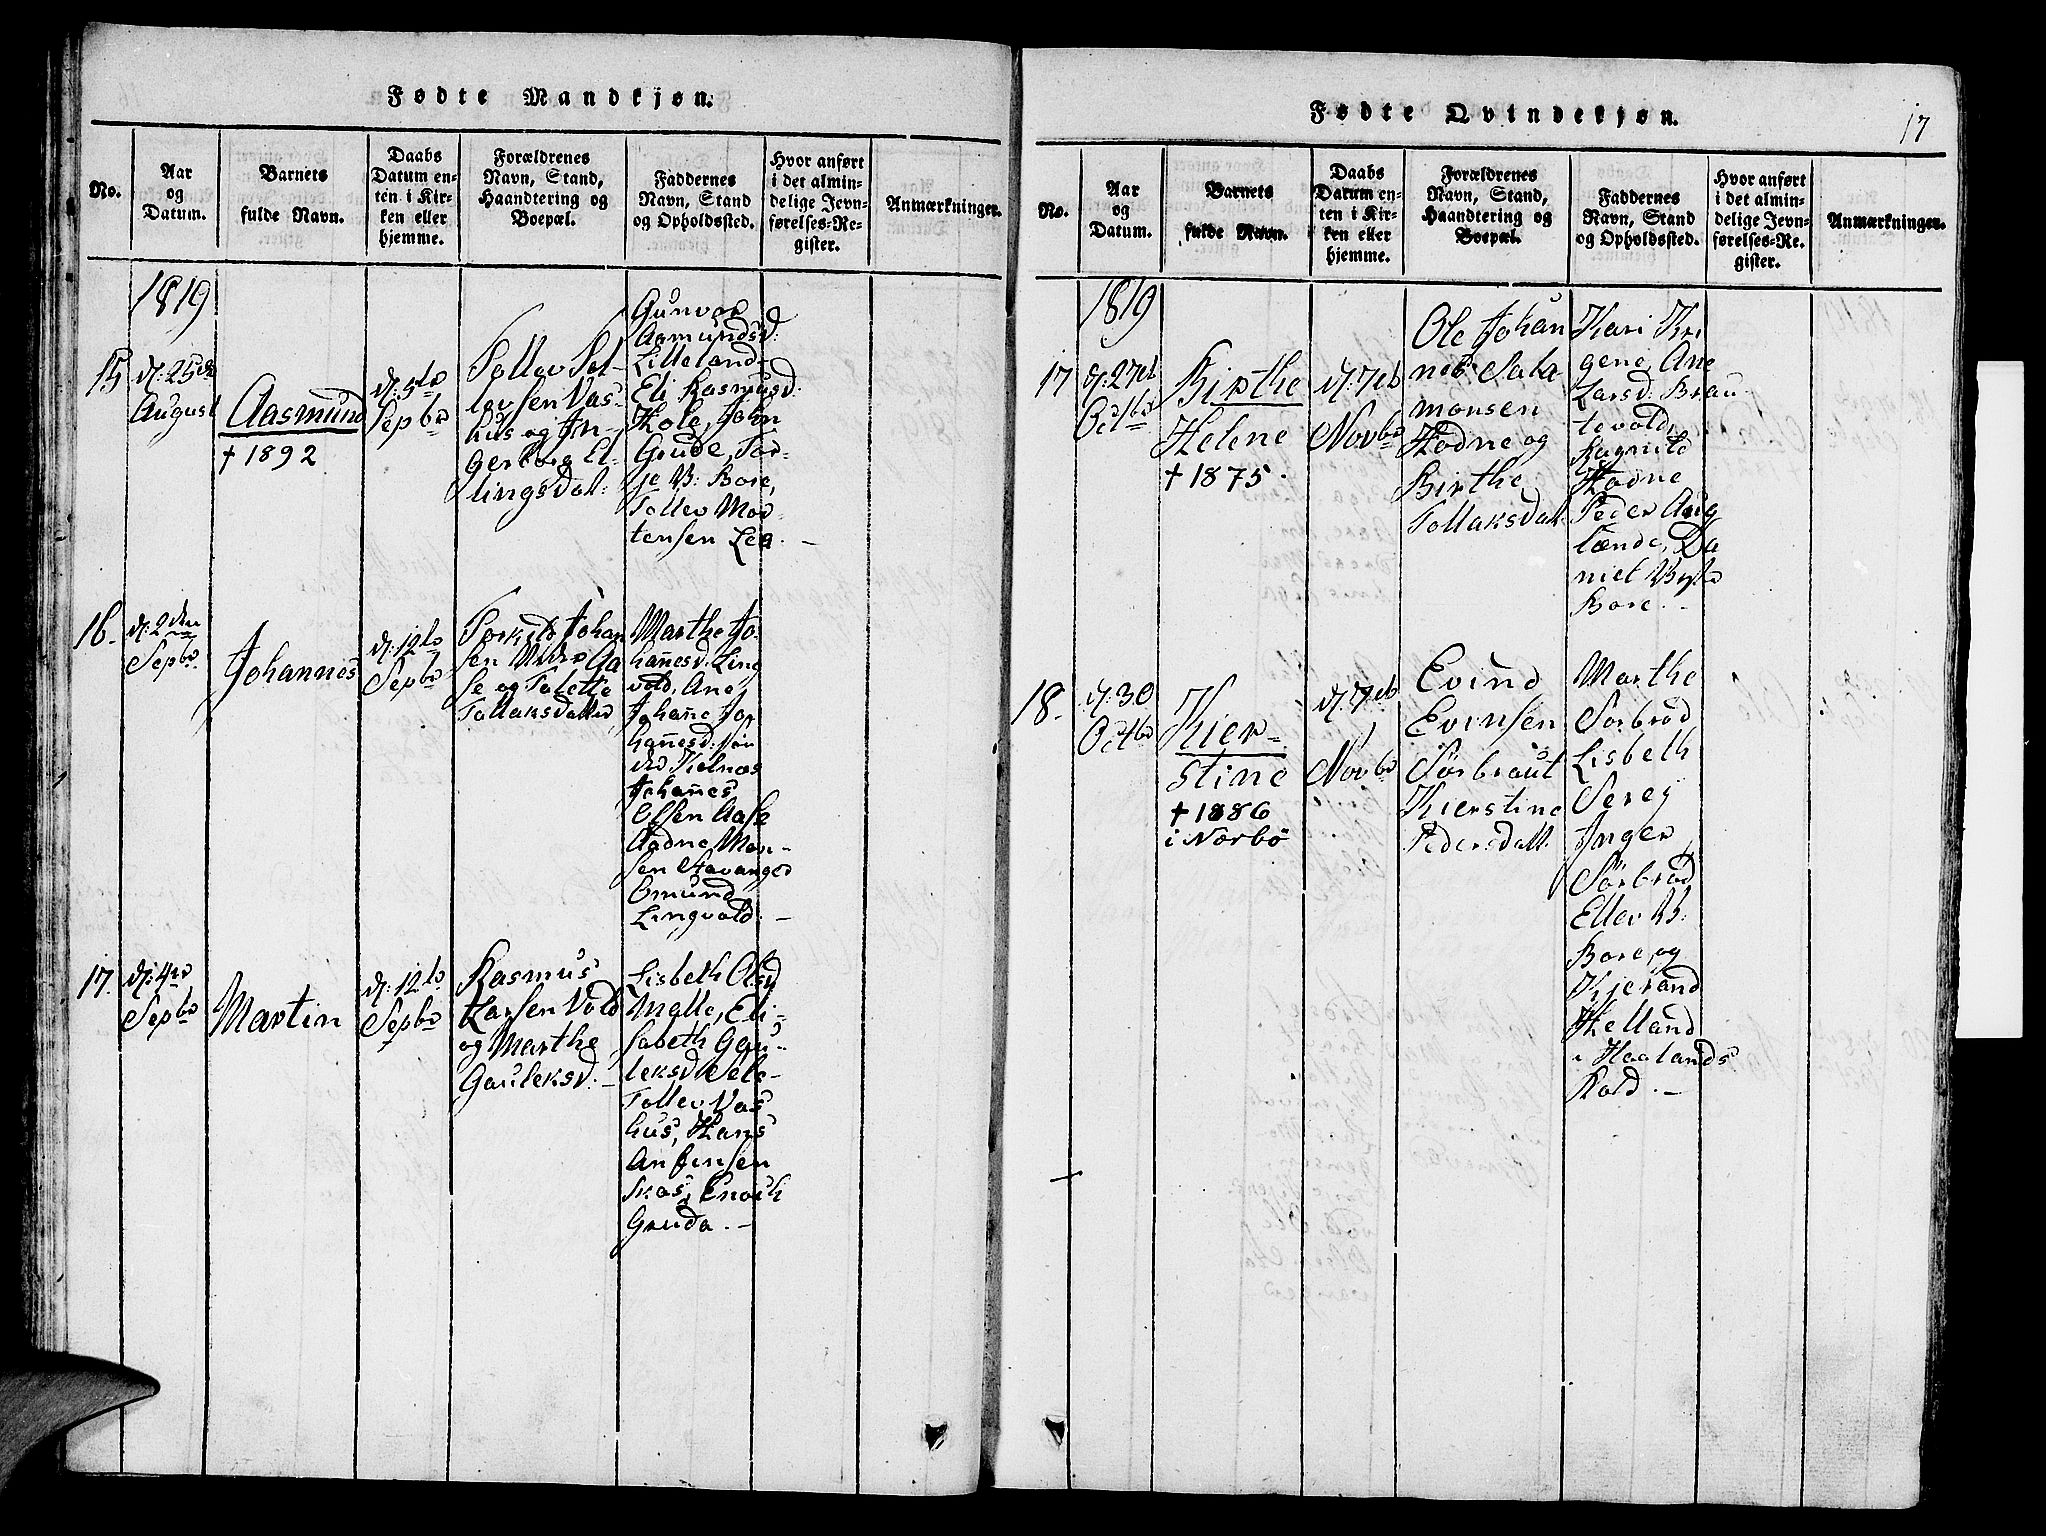 Fødte Mandkjøn.
No.
Aar
og
Datum.
Barnets
fulde Navn.
Daabs
Datum en-
ten i Kir-
ken eller
hjemme.
Forældrenes
Navn, Stand,
Haandtering og
Boepæl.
Faddernes
Navn, Stand
og Opholdssted.
Hvor anført
i det almin-
delige Jevn-
førelses-Re-
gister.
Anmærkninger.
1819
15
d. 25de
August
Aasmund
† 1892
d. 5te
Sepbr
Tollev Tol-
lavsen Vas-
hus og In-
gerborg El-
lingsdat:
Gunvor
Aasmundsd:
Lilleland
Eli Rasmusd:
Hole, John
Grude, Tor-
je B: Bore,
Tollev Mor
tensen Lea. —
16.
d. 2den
Sepbr
Johannes
d. 12te
Sepbr
Torkild Johan
sen Aa
se og Talette
Tollaksdatter
Marthe Jo-
hannesd: Ling
vold, Ane
Johane Jo
hannesd:
Kolnas
Johannes
Olsen Aase
Aadne Mon-
sen Stavanger
Omund
Lingvold. —
17.
d. 4de
Sepbr
Martin
d. 12te
Sepbr
Rasmus
Larsen Vold
og Marthe
Gauleksd: —
Lisbeth Olsd
Malle, Eli-
sabeth Gau-
leksd Sele-
Tollev Vas
hus, Hans
Anfensen
Skas, Enoch
Gruda. —
Fødte Qvindekjøn.
17
No.
Aar
og
Datum.
Barnets
fulde Navn.
Daabs
Datum en-
ten i Kir-
ken eller
hjemme.
Forældrenes
Navn, Stand,
Haandtering og
Boepæl.
Faddernes
Navn, Stand
og Opholdssted.
Hvor anført
i det almin-
delige Jevn-
førelses-Re-
gister.
Anmærkninger.
1819
17
d. 27de
Octbr
Birthe
Helene
† 1875.
d. 7de
Novbr
Ole Johan
nes Sala
monsen
Hodne og
Birthe
Tollaksdat.
Kari Kri
gene, Ane
Larsd: Brau-
tevold,
Ragnild
Hodne
Peder Aug
lænde, Da
niel
Bore. —
18.
d. 30
Octbr
Kier-
stine
† 1886
i Nærbö
d. 7de
Novbr
Evind
Evinsen
Sörbraut
Kierstine
Pedersdatt.
Marthe
Sörbröd
Lisbeth
Serej
Inger
Sörbröd
Ellev B:
Bore, og
Kjerand
Helland
i Haalands
Kald. —